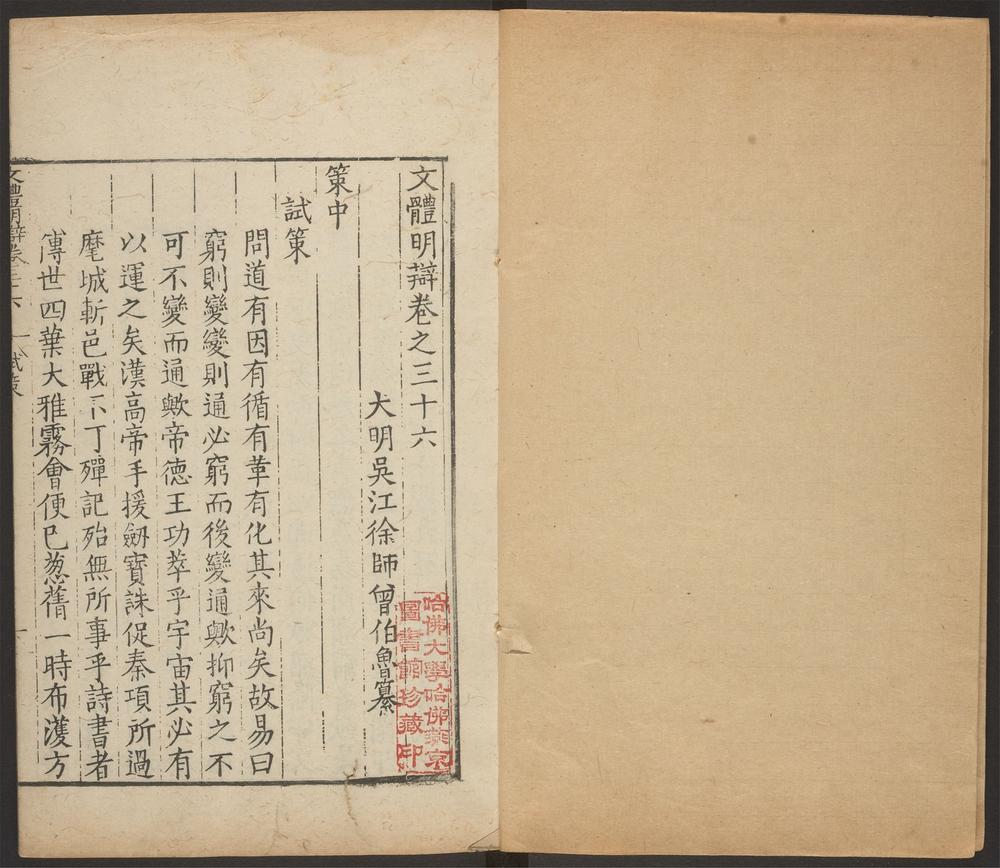 文體明辯卷之三十六
大明吳江徐師曾伯魯纂
策中
試策
問道有因有循有革有化其來尚矣故易曰
窮則變變則通必窮而後變通歟抑窮之不
可不變而通歟帝德王功萃乎宇宙其必有
以運之矣漢高帝手援劒寶誅促秦項所過
麾城斬邑戰不丁殫記殆無所事乎詩書者
傳世四葉大雅霧會便已葱蒨一時布濩方
文體明辯卷三十六 試策
哈佛大學哈佛燕京
圖書館珍藏印